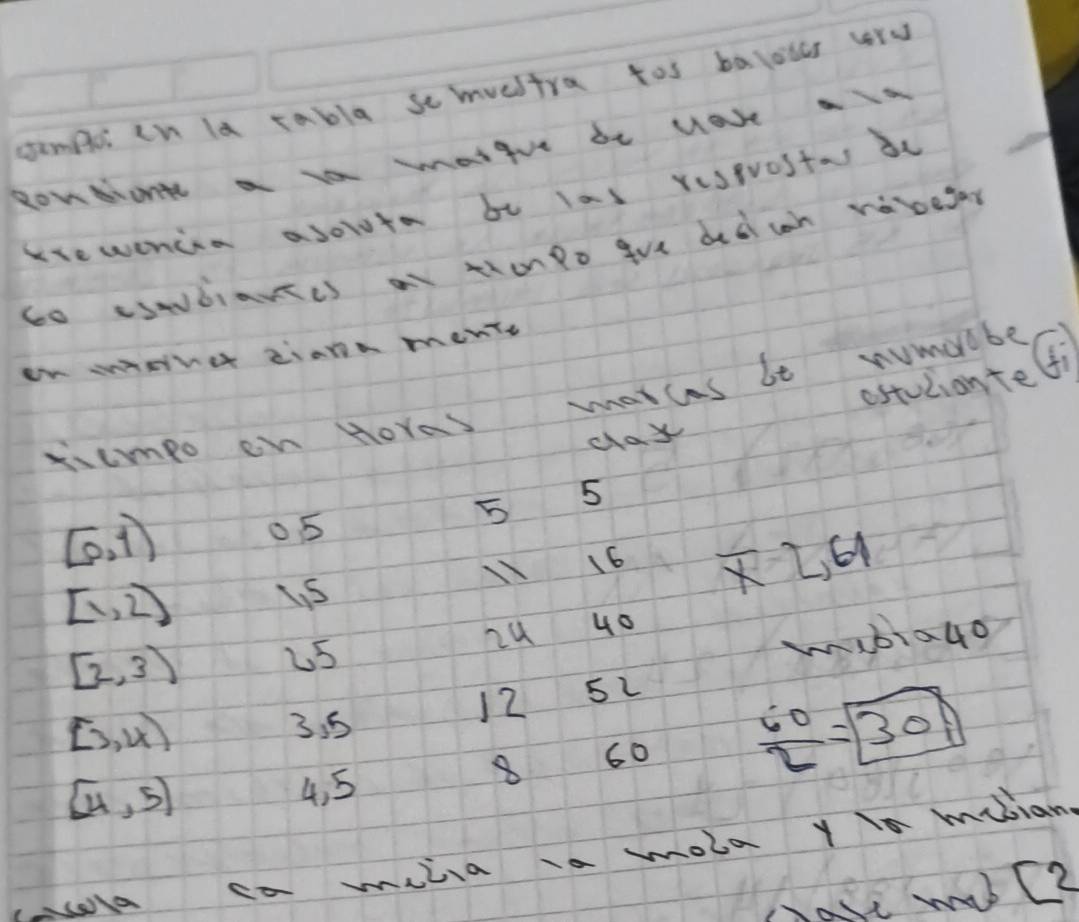 en la tabla se muestra los baloses
a la marque de clase a la
asoluta de las respuestas de
60 estudiantes al tienpo que dedican
en
tiempo en Horas marcas de numero be
clase estudiante (fi)
[0,1) 0,5 5 5
[1,2) 1,5 11 16 x̄ 2,61
[2,3) 2,5 24 40 mebia 40
[3,4) 3,5 12 52 60/2 = 30
[4,5) 4,5 8 60
la media la moda y la median
clase [2